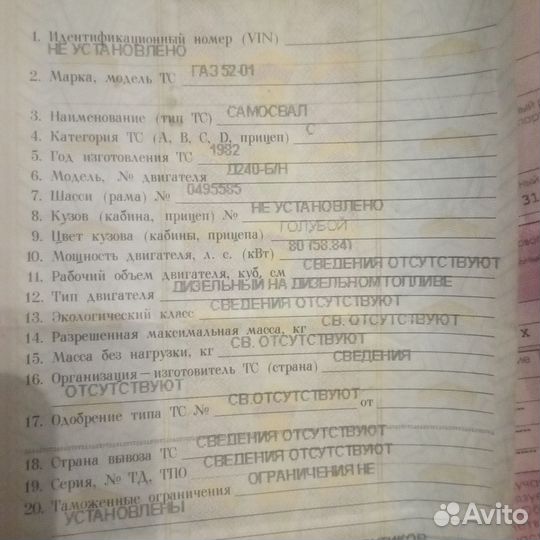 1. Идентификационный номер (VIN)
НЕ УСТАНОВЛЕНО
2. Марка, модель ТС ГАЗ 52-01
3. Наименование (тип ТС) САМОСВАЛ
4. Категория ТС (А, В, С, D, прицеп) С
5. Год изготовления ТС 1982
6. Модель, № двигателя Д240-Б/Н
7. Шасси (рама) № 0495585
8. Кузов (кабина, прицеп) № НЕ УСТАНОВЛЕНО
9. Цвет кузова (кабины, прицепа) ГОЛУБОЙ
10. Мощность двигателя, л. с. (кВт) 80 (58.841)
11. Рабочий объем двигателя, куб. см СВЕДЕНИЯ ОТСУТСТВУЮТ
12. Тип двигателя ДИЗЕЛЬНЫЙ НА ДИЗЕЛЬНОМ ТОПЛИВЕ
13. Экологический класс СВЕДЕНИЯ ОТСУТСТВУЮТ
14. Разрешенная максимальная масса, кг СВ. ОТСУТСТВУЮТ
15. Масса без нагрузки, кг СВ. ОТСУТСТВУЮТ
16. Организация—изготовитель ТС (страна) СВЕДЕНИЯ
ОТСУТСТВУЮТ
17. Одобрение типа ТС № СВ.ОТСУТСТВУЮТ от
18. Страна вывоза ТС СВЕДЕНИЯ ОТСУТСТВУЮТ
19. Серия, № ТД, ТПО СВЕДЕНИЯ ОТСУТСТВУЮТ
20. Таможенные ограничения ОГРАНИЧЕНИЯ НЕ
УСТАНОВЛЕНЫ
31
X
Avito